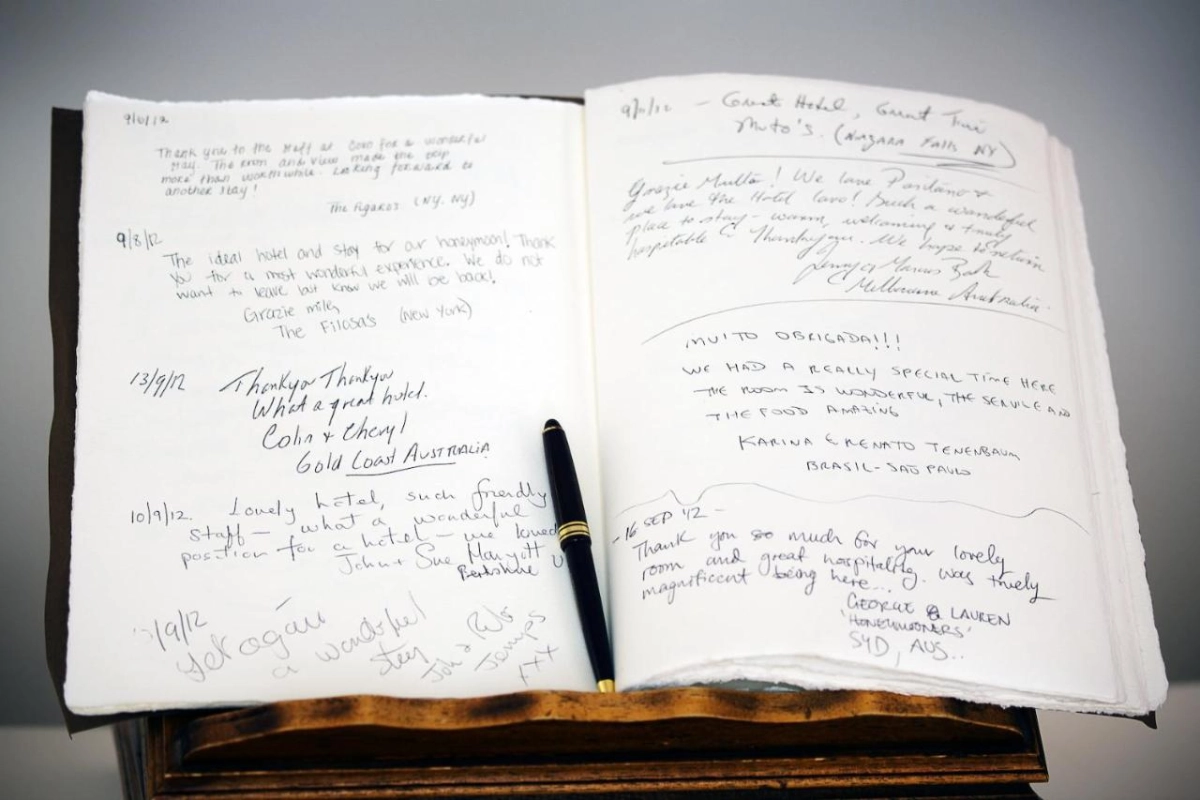 9/6/12
Thank you to the staff at Covo for a wonderful
stay. The room and view made the trip
more than worthwhile. Looking forward to
another stay!
The Figaros (NY, NY)
9/8/12
The ideal hotel and stay for our honeymoon! Thank
you for a most wonderful experience. We do not
want to leave but know we will be back!
Grazie mille,
The Filosa's (New York)
13/9/12 Thankyou Thankyou
What a great hotel.
Colin & Cheryl
Gold Coast AUSTRALIA
10/9/12. Lovely hotel, such friendly
staff - what a wonderful
position for a hotel - we loved
John + Sue
Berkshire
/9/12
a wonderful
stay
John &
xxx
- Great Hotel, Great
(Niagara Falls NY)
Grazie Multo! We love Positano &
we love the Hotel Covo! Such a wonderful
place to stay - warm, welcoming & truly
hospitable Thankyou. We hope to return
Marcus
Melbourne Australia.
MUITO OBRIGADA!!!
WE HAD A REALLY SPECIAL TIME HERE
THE ROOM IS WONDERFUL, THE SERVICE AND
THE FOOD AMAZING
KARINA & RENATO TENENBAUM
BRASIL - SAO PAULO
- 16 SEP '12 -
Thank you so much for your lovely
room and great hospitality. Was truely
magnificent being here...
GEORGE & LAUREN
'HONEYMOONERS'
SYD, AUS..